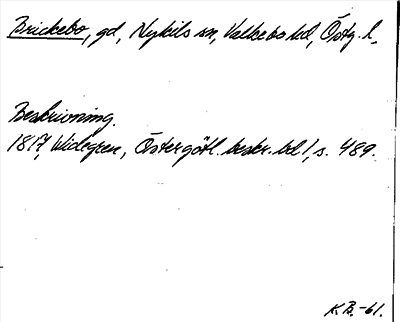 Brickebo, gd, Nykils sn, Valkebo hd, Östg. l.
Beskrivning.
1817, Widegren, Östergötl. beskr. bd 1, s. 489.
K.B.-61.